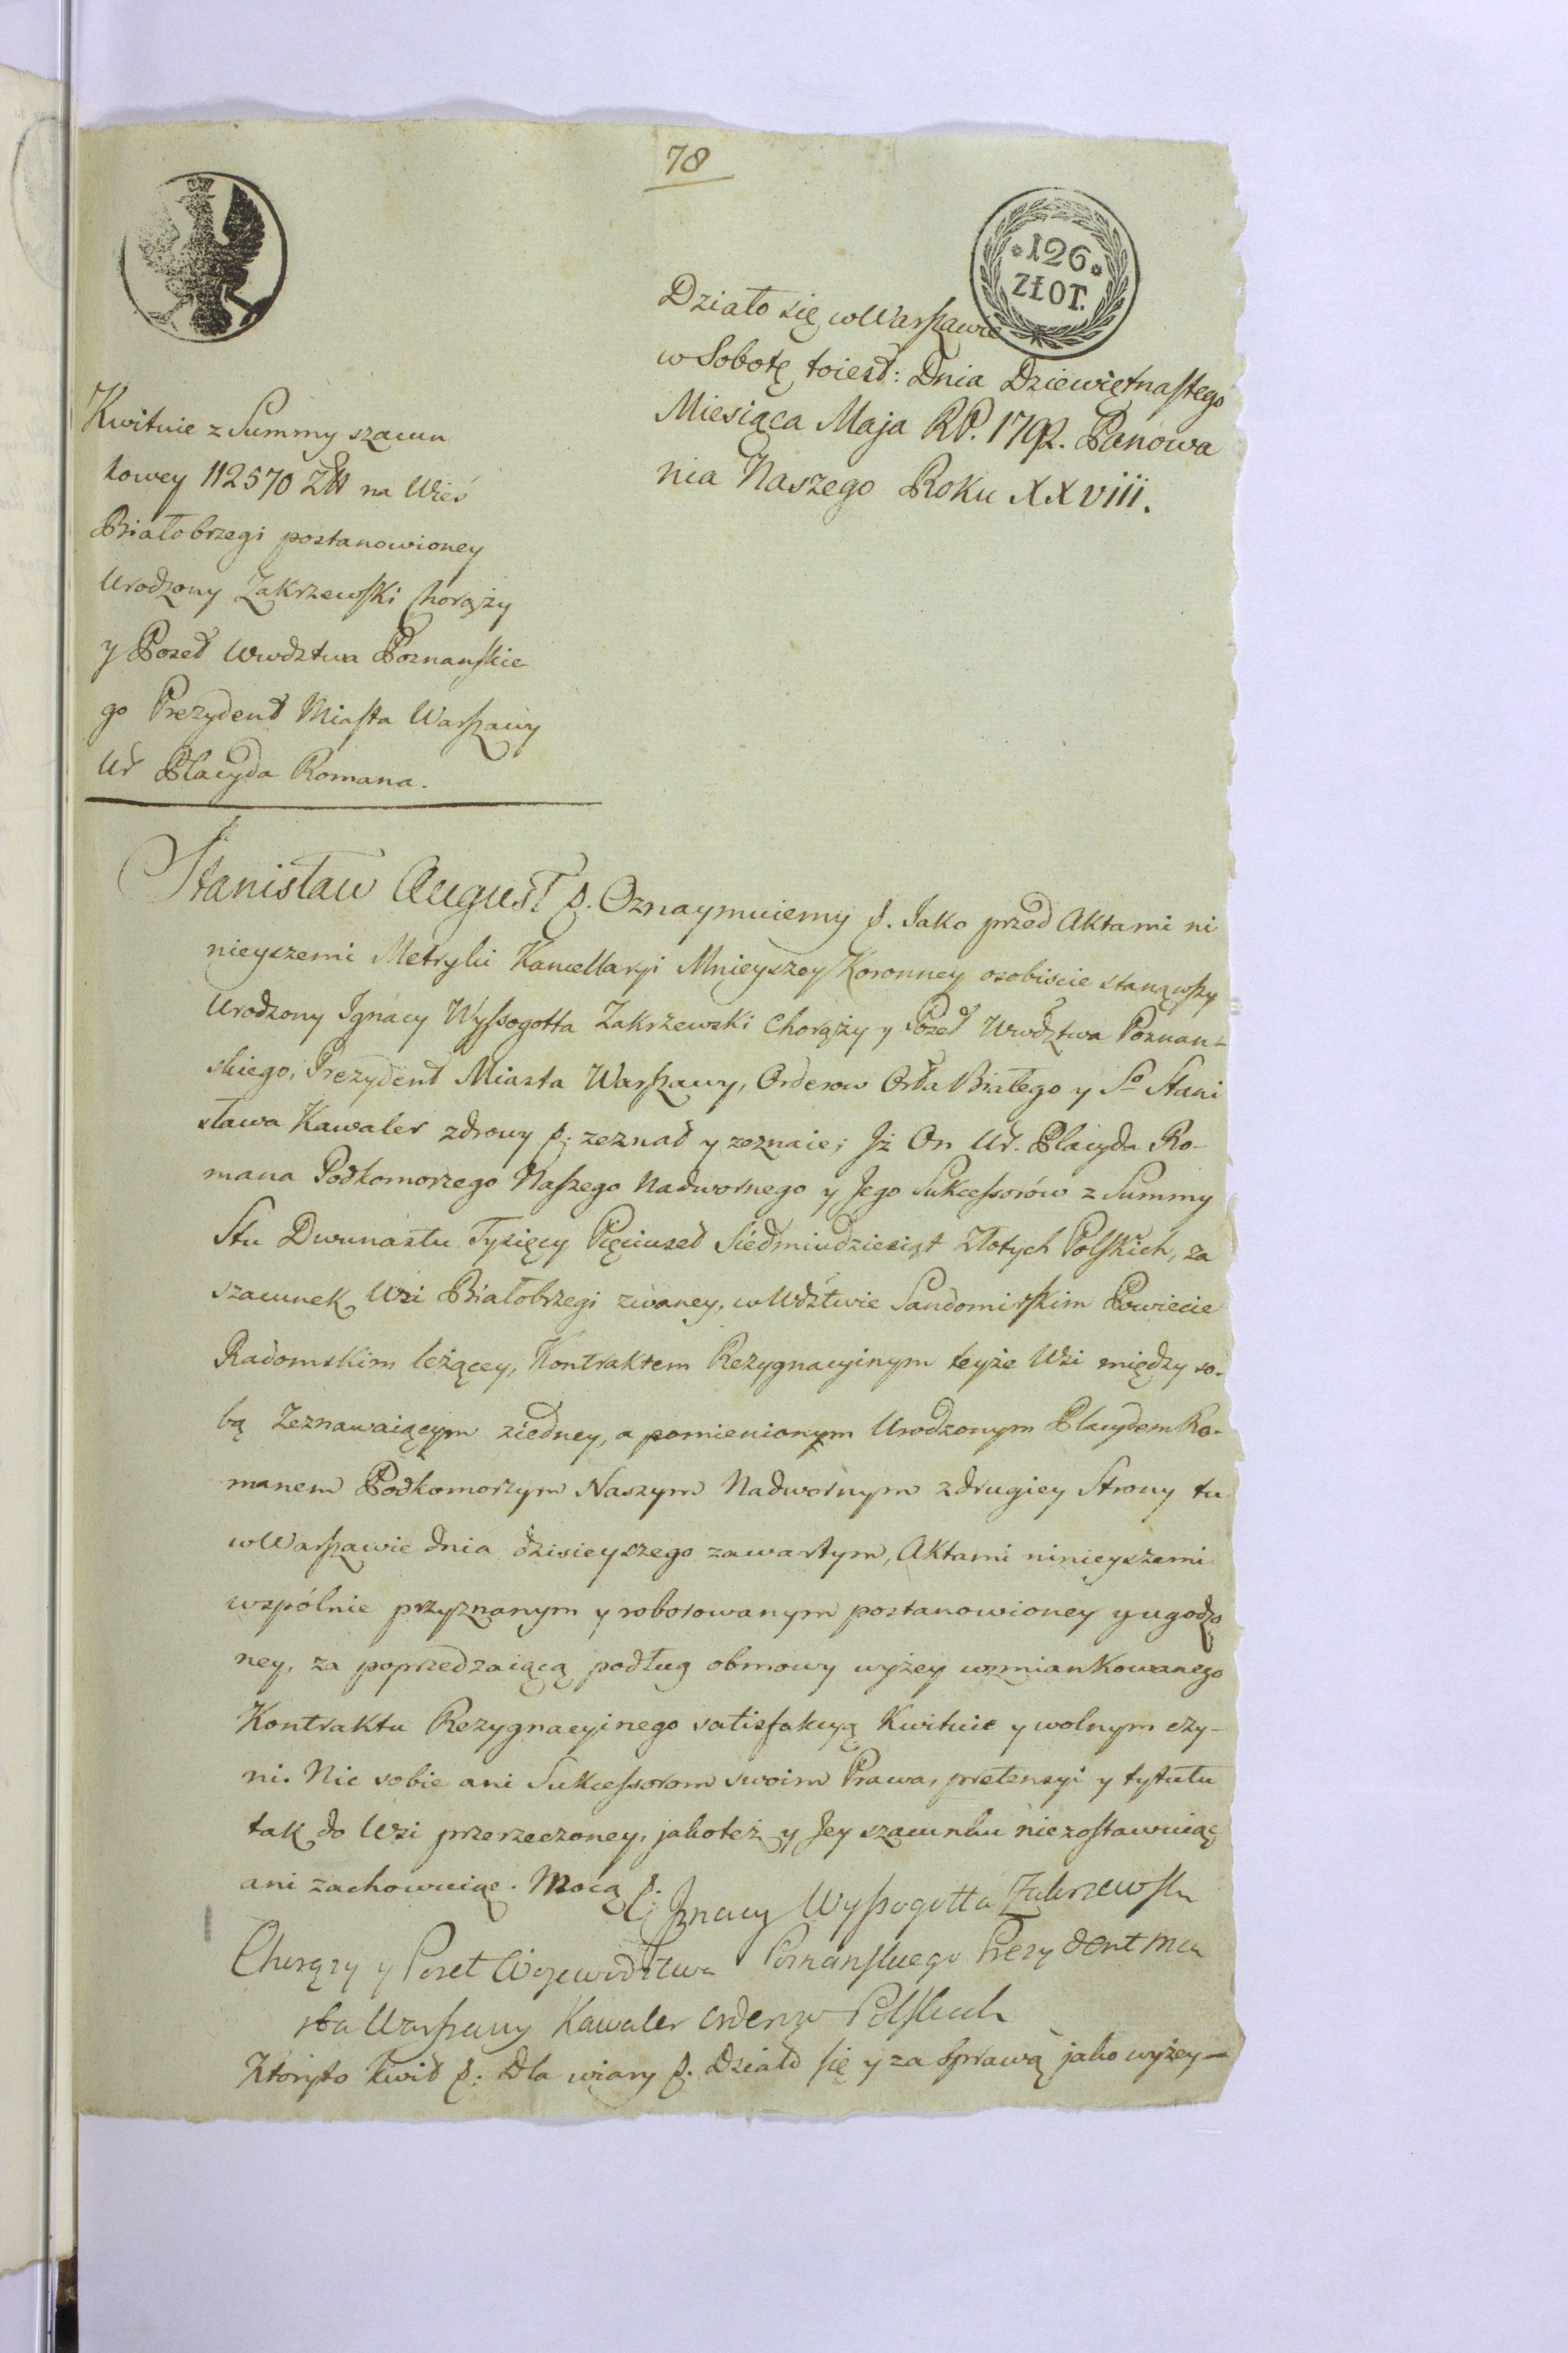 78
*126*
ZŁOT.
Działo się w Warszawie
w Sobotę toiest: Dnia Dziewiętnastego
Miesiąca Maja RP. 1792. Panowa
nia Naszego Roku XXVIII.
Kwituie z Summy szacun
kowey 112570 Zł na Wieś
Białobrzegi postanowioney
Urodzony Zakrzewski Chorąży
y Poseł Wwdztwa Poznańskie
go Prezydent Miasta Warszawy
Ur Placyda Romana.
Stanisław August p. Oznaymuiemy p. Jako przed Aktami ni
nieyszemi Metryki Kancellaryi Mnieyszey Koronney osobiscie stanąwszy
Urodzony Ignacy Wyssogotta Zakrzewski Chorąży y Poseł Wwdztwa Poznan-
skiego, Prezydent Miasta Warszawy, Orderow Orła Białego y Sº Stani
sława Kawaler zdrowy p. zeznał y zeznaie; Jż On Ur. Placyda Ro-
mana Podkomorzego Naszego Nadwornego y Jego Sukcessorów z Summy
Stu Dwunastu Tysięcy Pięciuset Siedmiudziesiąt Złotych Polskich, za
szacunek Wsi Białobrzegi zwaney, w Wdztwie Sandomirskim Powiecie
Radomskim leżącey, Kontraktem Rezygnacyinym teyże Wsi między so-
bą Zeznawaiącym ziedney, a pomienionym Urodzonym Placydem Ro-
manem Podkomorzym Naszym Nadwornym zdrugiey Strony tu
w Warszawie dnia dzisieyszego zawartym, Aktami ninieyszemi
wspólnie przyznanym y roborowanym postanowioney y ugodzo
ney, za poprzedzaiącą podług obmowy wyżey wzmiankowanego
Kontraktu Rezygnacyinego satisfakcyą Kwituie y wolnym czy-
ni. Nic sobie ani Sukcessorom swoim Prawa, pretensyi y tytułu
tak do Wsi przerzeczoney, jakoteż y Jey szacunku niezostawuiąc
ani zachowuiąc. Mocą p.
Jgnacy Wyssogotta Zakrzewski
Chorązy y Poseł Wojewodztwa Poznanskiego Prezydent Mia
sta Warszawy Kawaler Orderow Polskich
Ktoryto Kwit p. Dla wiary p. Działo się y za sprawą jako wyżey—